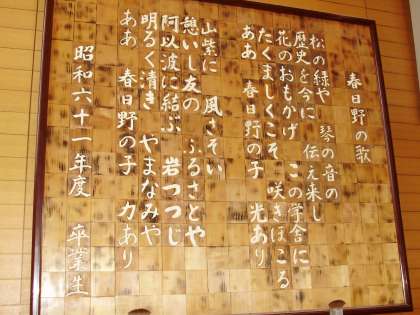 春日野の歌
松の緑や 琴の音の
歴史を今に 伝え来し
花のおもかげ この学舎に
たくましくこそ 咲きほこる
ああ 春日野の子 光あり
山紫に 風さそい
憩いし友の ふるさとや
阿以波に結ぶ 岩つつじ
明るく清き やまなみや
ああ 春日野の子 力あり
昭和六十一年度 卒業生